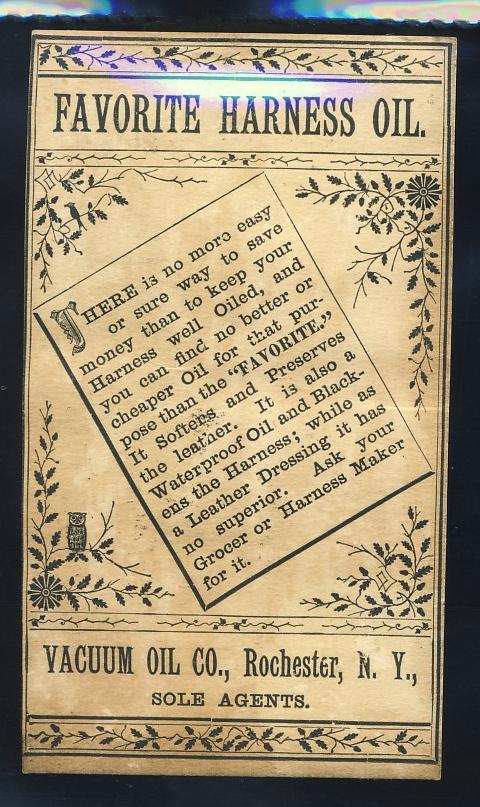 FAVORITE HARNESS OIL.
THERE is no more easy
or sure way to save
money than to keep your
Harness well Oiled, and
you can find no better or
cheaper Oil for that pur-
pose than the "FAVORITE."
It Softens and Preserves
the leather. It is also a
Waterproof Oil and Black-
ens the Harness; while as
a Leather Dressing it has
no superior. Ask your
Grocer or Harness Maker
for it.
VACUUM OIL CO., Rochester, N. Y.,
SOLE AGENTS.